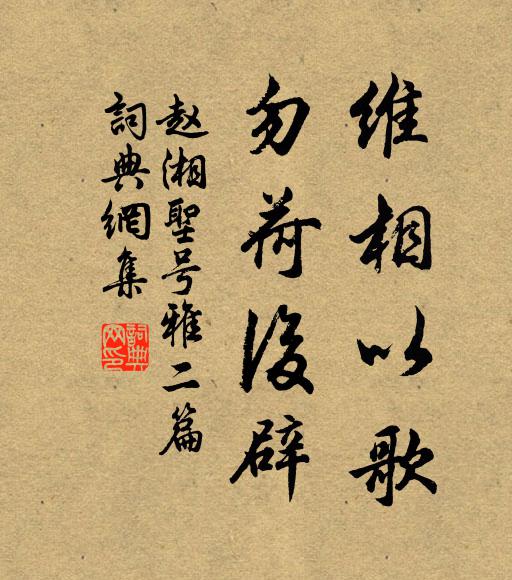 维相以歌
勿荷後辟
赵湘聖号雅二篇
詞典網集
詞典
网印